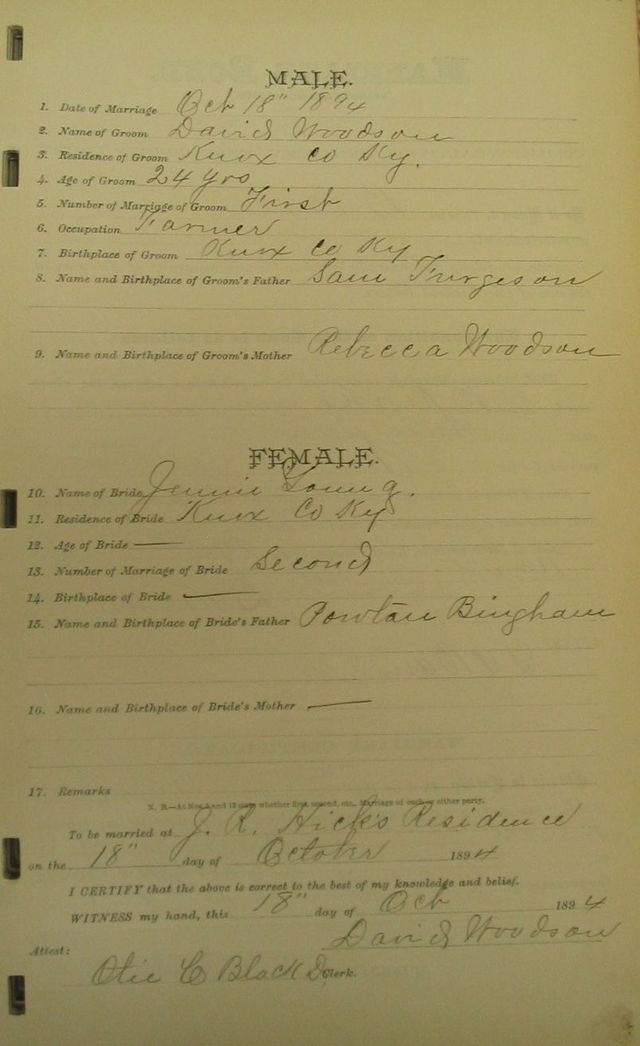 MALE.
1. Date of Marriage Oct 18" 1894
2. Name of Groom David Woodson
3. Residence of Groom Knox Co Ky.
4. Age of Groom 24 yrs
5. Number of Marriage of Groom First
6. Occupation Farmer
7. Birthplace of Groom Knox Co Ky
8. Name and Birthplace of Groom's Father Sam Furgeson
9. Name and Birthplace of Groom's Mother Rebecca Woodson
FEMALE.
10. Name of Bride Jennie Young.
11. Residence of Bride Knox Co Ky
12. Age of Bride —
13. Number of Marriage of Bride Second
14. Birthplace of Bride —
15. Name and Birthplace of Bride's Father Powtan Bingham
16. Name and Birthplace of Bride's Mother —
17. Remarks
N. B.—At Nos. 5 and 13 state whether first, second, etc., Marriage of each or either party.
To be married at J. R. Hicks Residence
on the 18" day of October 1894
I CERTIFY that the above is correct to the best of my knowledge and belief.
WITNESS my hand, this 18" day of Oct 1894
David Woodson
Attest:
C Black D Clerk.